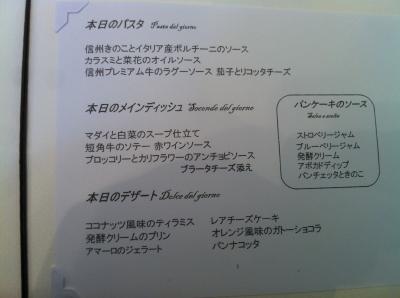 本日のパスタ Pasta del giorno
信州きのことイタリア産ポルチーニのソース
カラスミと菜花のオイルソース
信州プレミアム牛のラグーソース 茄子とリコッタチーズ
本日のメインディッシュ Secondo del giorno
マダイと白菜のスープ仕立て
短角牛のソテー 赤ワインソース
ブロッコリーとカリフラワーのアンチョビソース
ブラータチーズ添え
パンケーキのソース
Salsa a scelta
ストロベリージャム
ブルーベリージャム
発酵クリーム
アボカドディップ
パンチェッタときのこ
本日のデザート Dolce del giorno
ココナッツ風味のティラミス レアチーズケーキ
発酵クリームのプリン オレンジ風味のガトーショコラ
アマーロのジェラート パンナコッタ